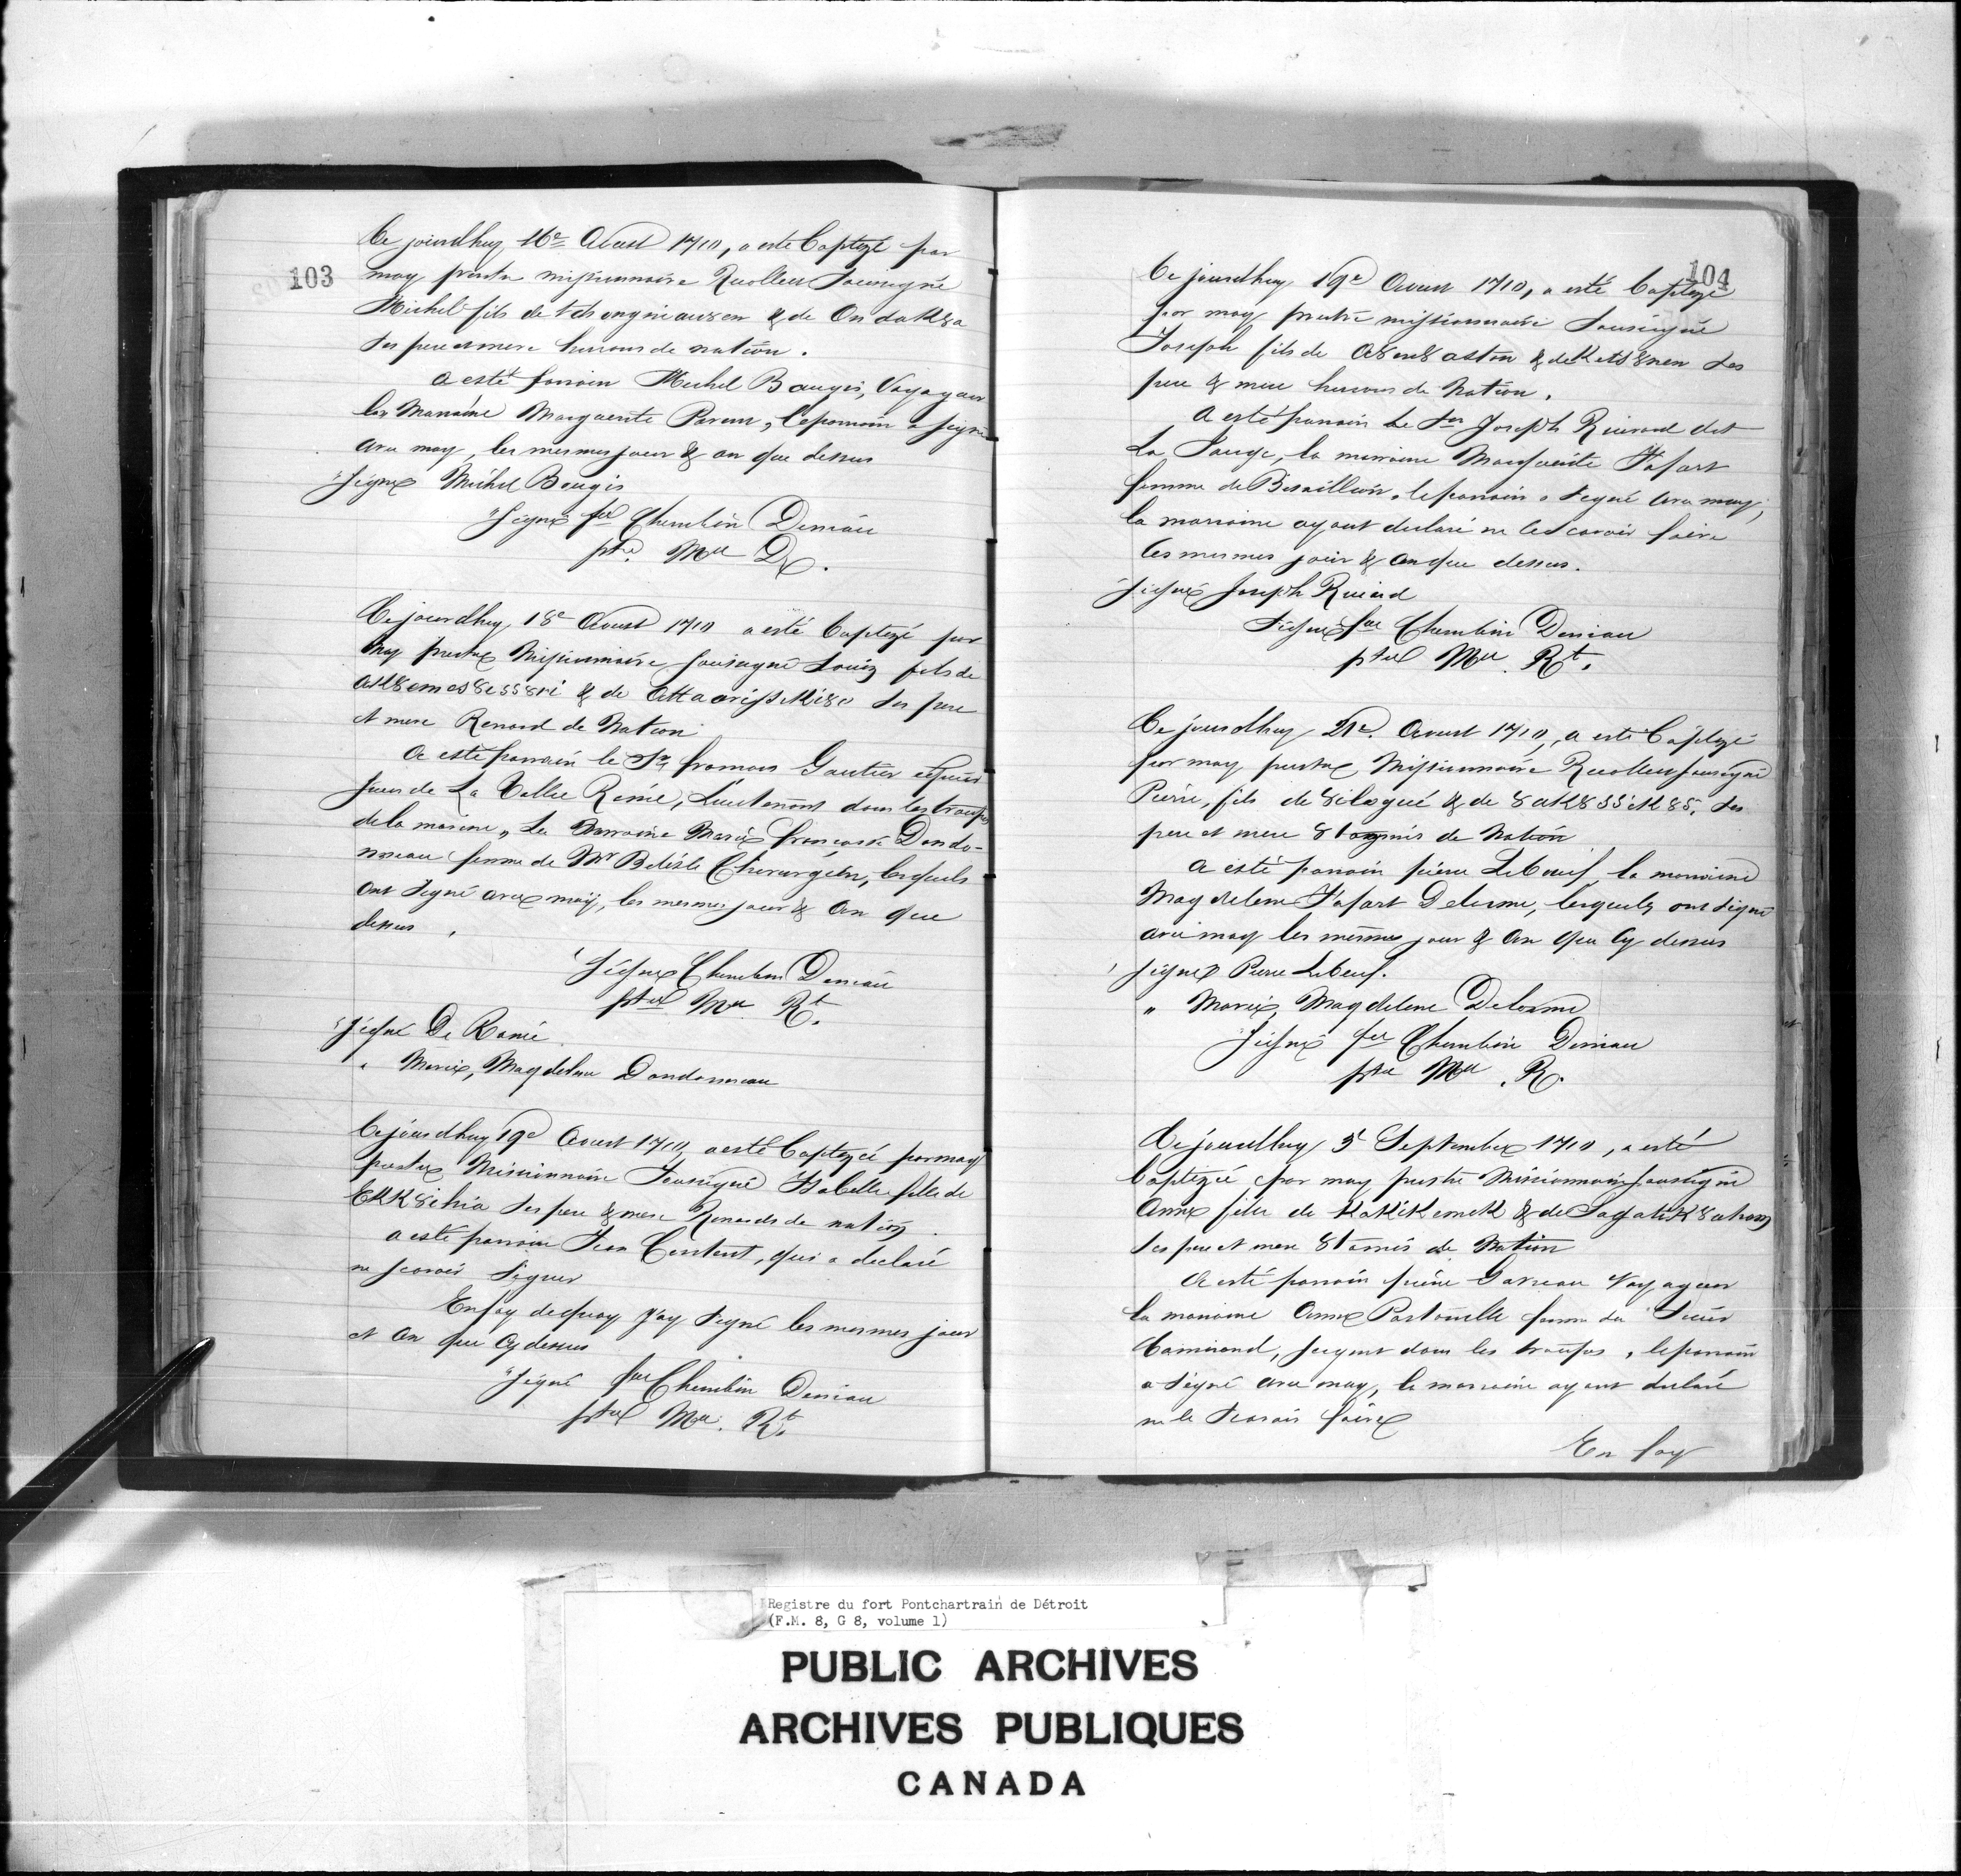 103
Ce jourdhuy 16e Aoust 1710, a esté baptizé par
moy prestre missionnaire Recollect soussigné
Michel fils de & de Ondak8a
ses pere et mere hurons de nation.
a esté parrain Michel Baugis, Voyageur
la Marraine Marguerite Parent, le parrain a signé
avec moy, les mesmes jour & an que dessus
"Signé Michel Bougis
"Signé fre Cherubin Deniau
ptre Mre R.
Ce jourdhuy, 18e Aoust 1710 a esté baptizé par
moy prestre Missionnaire soussigné Louis fils de
& de ses pere
et mere Renard de Nation
a esté parrain le Sr francois Gautier
sieur de La Vallee Ranée, Lieutenant dans les troupes
de la marine, La Marraine Marie françoise Dondo-
nneau femme de Mr Belisle Chirurgien, lesquels
ont signé avec moy, les mesmes jour & an que
dessus.
Signé Cherubin Deniau
ptre Mre Rt.
"Signé De Ranée
" Marie, Magdelene Dondonneau
Ce jourdhuy 19e Aoust 1710, a esté baptizée par moy
prestre Missionnaire soussigné Isabelle fille de
ses pere & mere Renards de nation.
a esté parrain Jean Content, qui a declaré
ne scavoir signer
En foy de quoy j'ay signé les mesmes jour
et an que cy dessus
"Signé fre Cherubin Deniau
ptre Mre. Rt.
104
Ce jourdhuy 19e Aoust 1710, a esté baptizé
par moy prestre missionnaire soussigné
Joseph fils de & de ses
pere & mere hurons de Nation.
a esté parrain le Sr Joseph Rivard dit
La Jauge, la marraine Marguerite Fafart
femme de Besaillion, le parrain a signé avec moy,
la marraine ayant declaré ne le scavoir faire
les mesmes jour & an que dessus.
Signé Joseph Riuard
Signé fre Cherubin Deniau
ptre Mre Rt.
Ce jourdhuy 21e. Aoust 1710, a esté baptizé
par moy prestre Missionnaire Recollect soussigné
Pierre, fils de & de ses
pere et mere de Nation
a esté parrain pierre Leboeuf, la marraine
Magdelene Fafart Delorme, lesquels ont signé
avec moy les mesmes jour & an que cy dessus
Signé Pierre Lebeuf.
" Marie, Magdelene Delorme
Signé fre Cherubin Deniau
ptre Mre. R.
Ce jourdhuy 3e Septembre 1710, a esté
baptizée par moy prestre Missionnaire soussigné
Anne fille de & de
ses pere et mere de Nation
a esté parrain pierre Gareau Voyageur
la marraine Anne Pastourelle femme du Sieur
Camirand, sergent dans les troupes, le parrain
a signé avec moy, la marraine ayant declaré
ne le scavoir faire
En foy
Registre du fort Pontchartrain de Détroit
(F.M. 8, G 8, volume 1)
PUBLIC ARCHIVES
ARCHIVES PUBLIQUES
CANADA